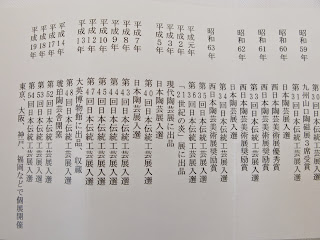 昭和59年
九州山口陶磁展3席受賞
日本陶芸展入選
昭和60年
西日本陶芸美術展優秀賞
昭和61年
西日本陶芸美術展奨励賞
昭和62年
日本陶芸展入選
第34回日本伝統工芸展入選
昭和63年
第35回日本伝統工芸展入選
平成元年
「21世紀の炎」展に出品
平成3年
現代陶芸展に出品
平成5年
日本陶芸展入選
第40回日本伝統工芸展入選
平成7年
日本陶芸展入選
平成8年
第43回日本伝統工芸展入選
平成9年
第44回日本伝統工芸展入選
平成10年
第45回日本伝統工芸展入選
平成12年
第47回日本伝統工芸展入選
平成13年
大英博物館に出品、収蔵
平成14年
平成17年
第52回日本伝統工芸展入選
平成18年
第53回日本伝統工芸展入選
平成19年
第54回日本伝統工芸展入選
東京、大阪、神戸、福岡などで個展開催